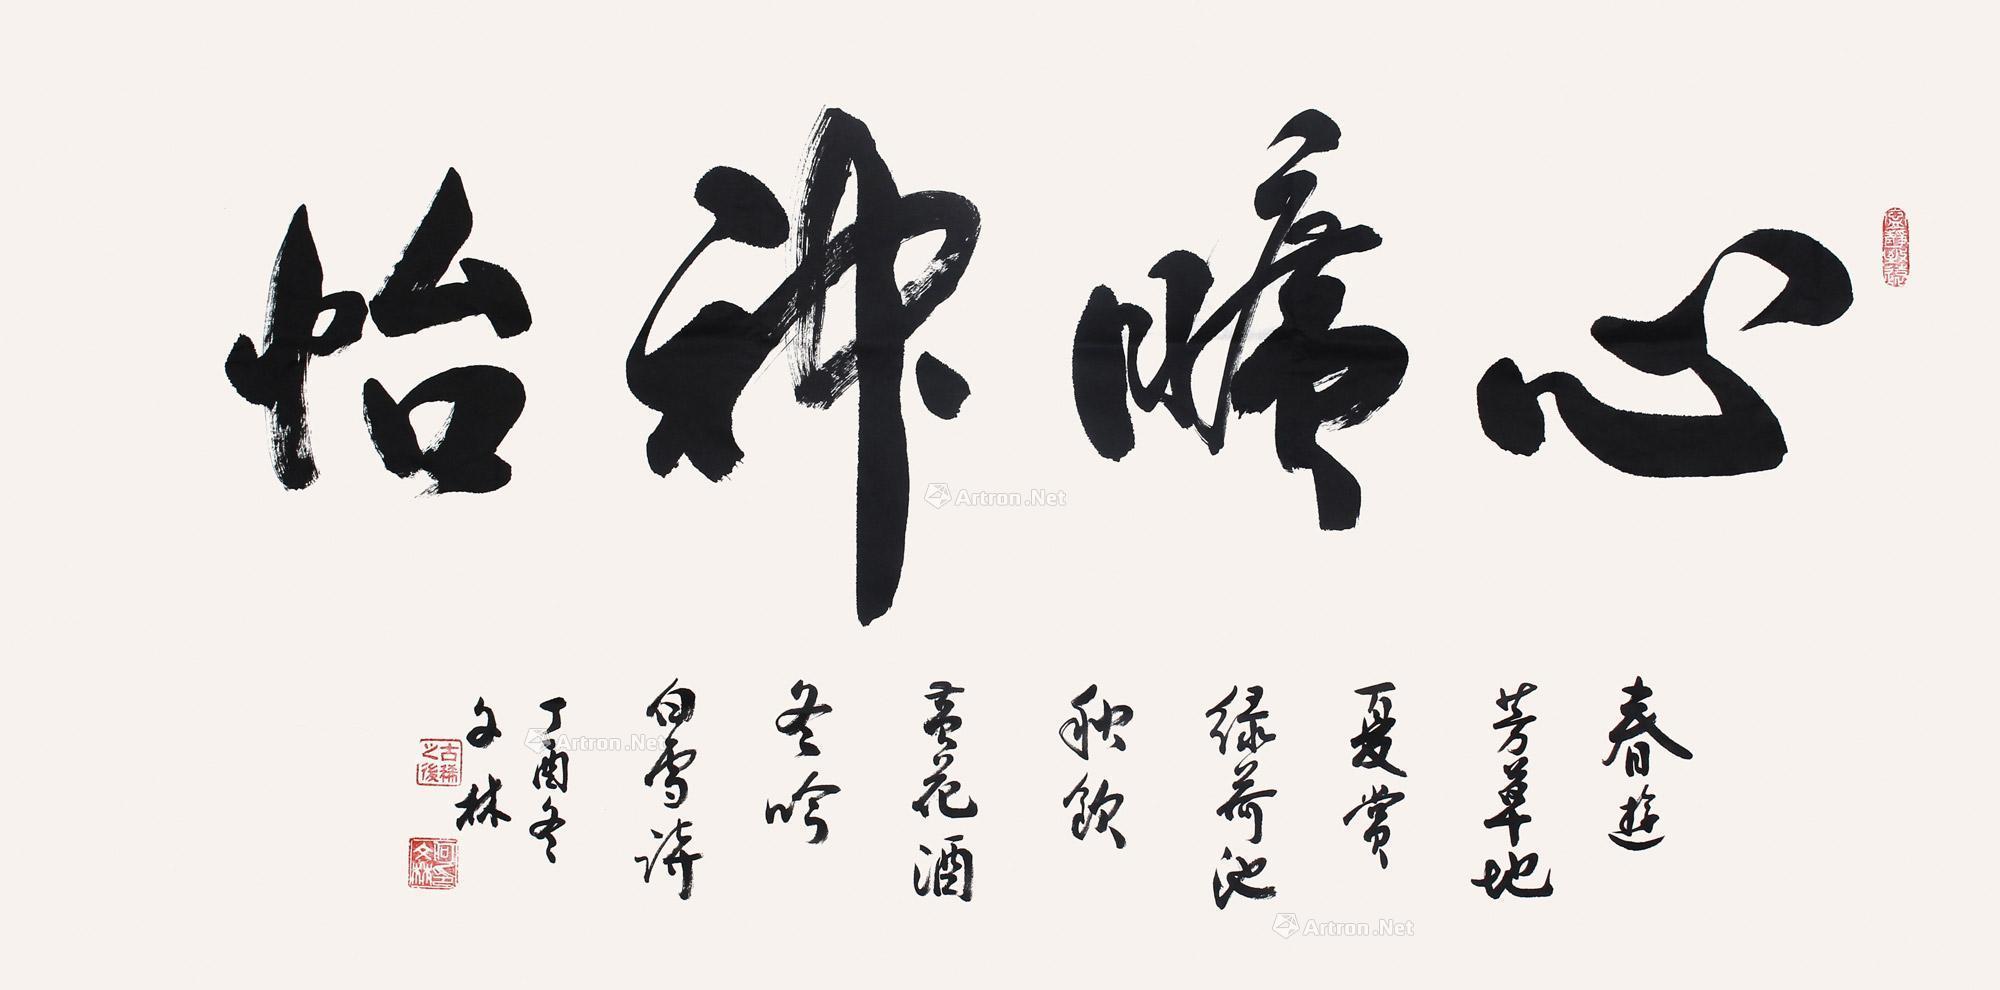 心曠神怡
春遊
芳草地
夏賞
綠荷池
秋飲
黃花酒
冬吟
白雪詩
丁酉冬
文林
古稀之後
Artron.Net
Artron.Net
Artron.Net